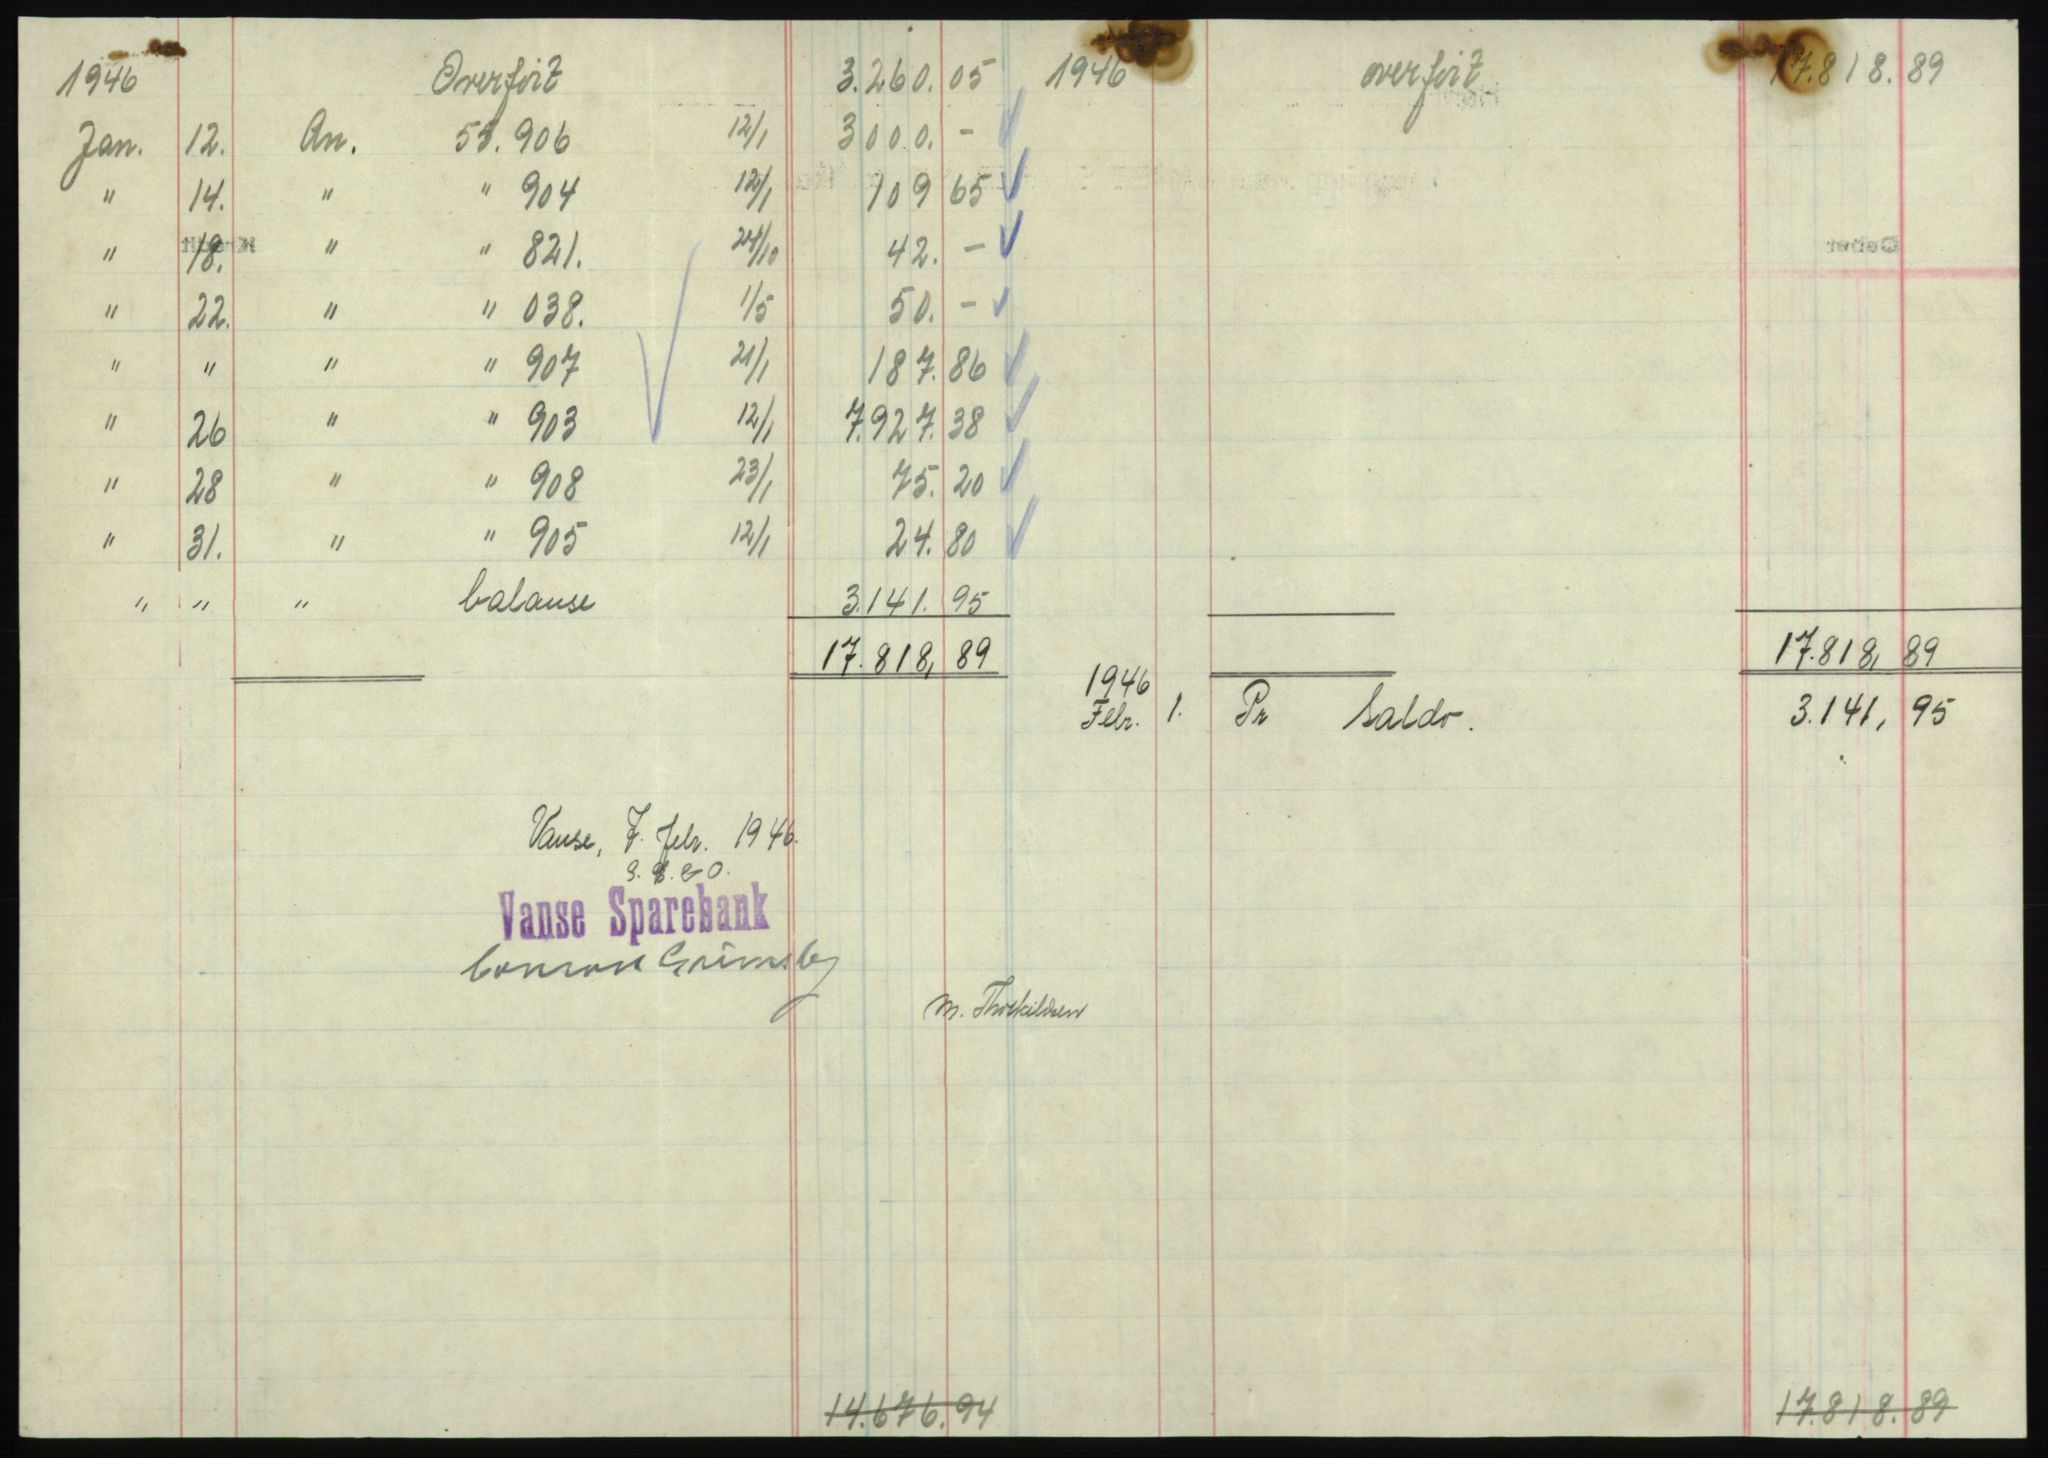 1946 Overført 3.260.05
Jan. 12. An. 55.906 12/1 3000.-
" 14. " " 904 12/1 109 65
" 18. " " 821. 24/10 42.-
" 22. " " 038. 1/5 50.-
" " " " 907 21/1 187.86
" 26 " " 903 12/1 7.927.38
" 28 " " 908 23/1 75.20
" 31. " " 905 12/1 24.80
" " " balanse 3.141.95
17.818,89
Vanse, 7. febr. 1946.
Vanse Sparebank
Grimsby
M. Thorkildsen
14.676.94
1946 overført 17.818.89
Kredit
Debet
17.818,89
1946
Febr. 1. Pr Saldo. 3.141,95
17.818.89